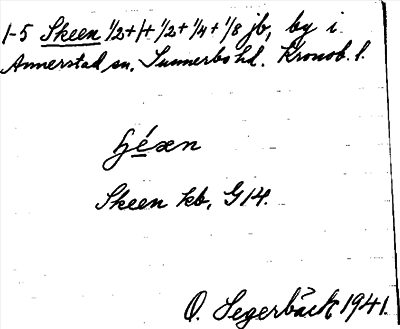 1-5 Skeen 1/2+1+1/2+1/4+1/8 jb, by i
Annerstad sn, Sunnerbo hd. Kronob. l.
ʃé̱xn
Skeen kb, G14.
O. Segerbäck 1941.